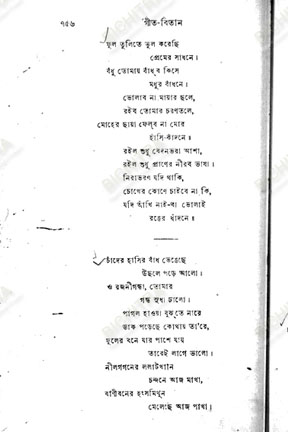 ৭৫৬
গীত-বিতান
ফুল তুলিতে ভুল করেছি
প্রেমের সাধনে।
বঁধু তোমায় বাঁধব কিসে
মধুর বাঁধনে।
ভোলাব না মায়ার ছলে,
রইব তোমার চরণতলে,
মোহের ছায়া ফেলব না মোর
হাসি-কাঁদনে॥
রইল শুধু বেদনভরা আশা,
রইল শুধু প্রাণের নীরব ভাষা।
নিরাভরণ যদি থাকি,
চোখের কোণে চাইবে না কি,
যদি আঁখি নাই-বা ভোলাই
রঙের ধাঁদনে॥
চাঁদের হাসির বাঁধ ভেঙেছে
উছলে পড়ে আলো।
ও রজনীগন্ধা, তোমার
গন্ধ সুধা ঢালো।
পাগল হাওয়া বুঝতে নারে
ডাক পড়েছে কোথায় তা'রে,
ফুলের বনে যার পাশে যায়
তারেই লাগে ভালো।
নীলগগনের ললাটখানি
চন্দনে আজ মাখা,
বাণীবনের হংসমিথুন
মেলেছে আজ পাখা।